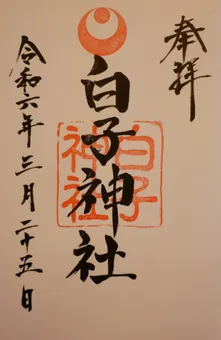 奉拝
白子神社
白子神社
令和六年三月二十五日